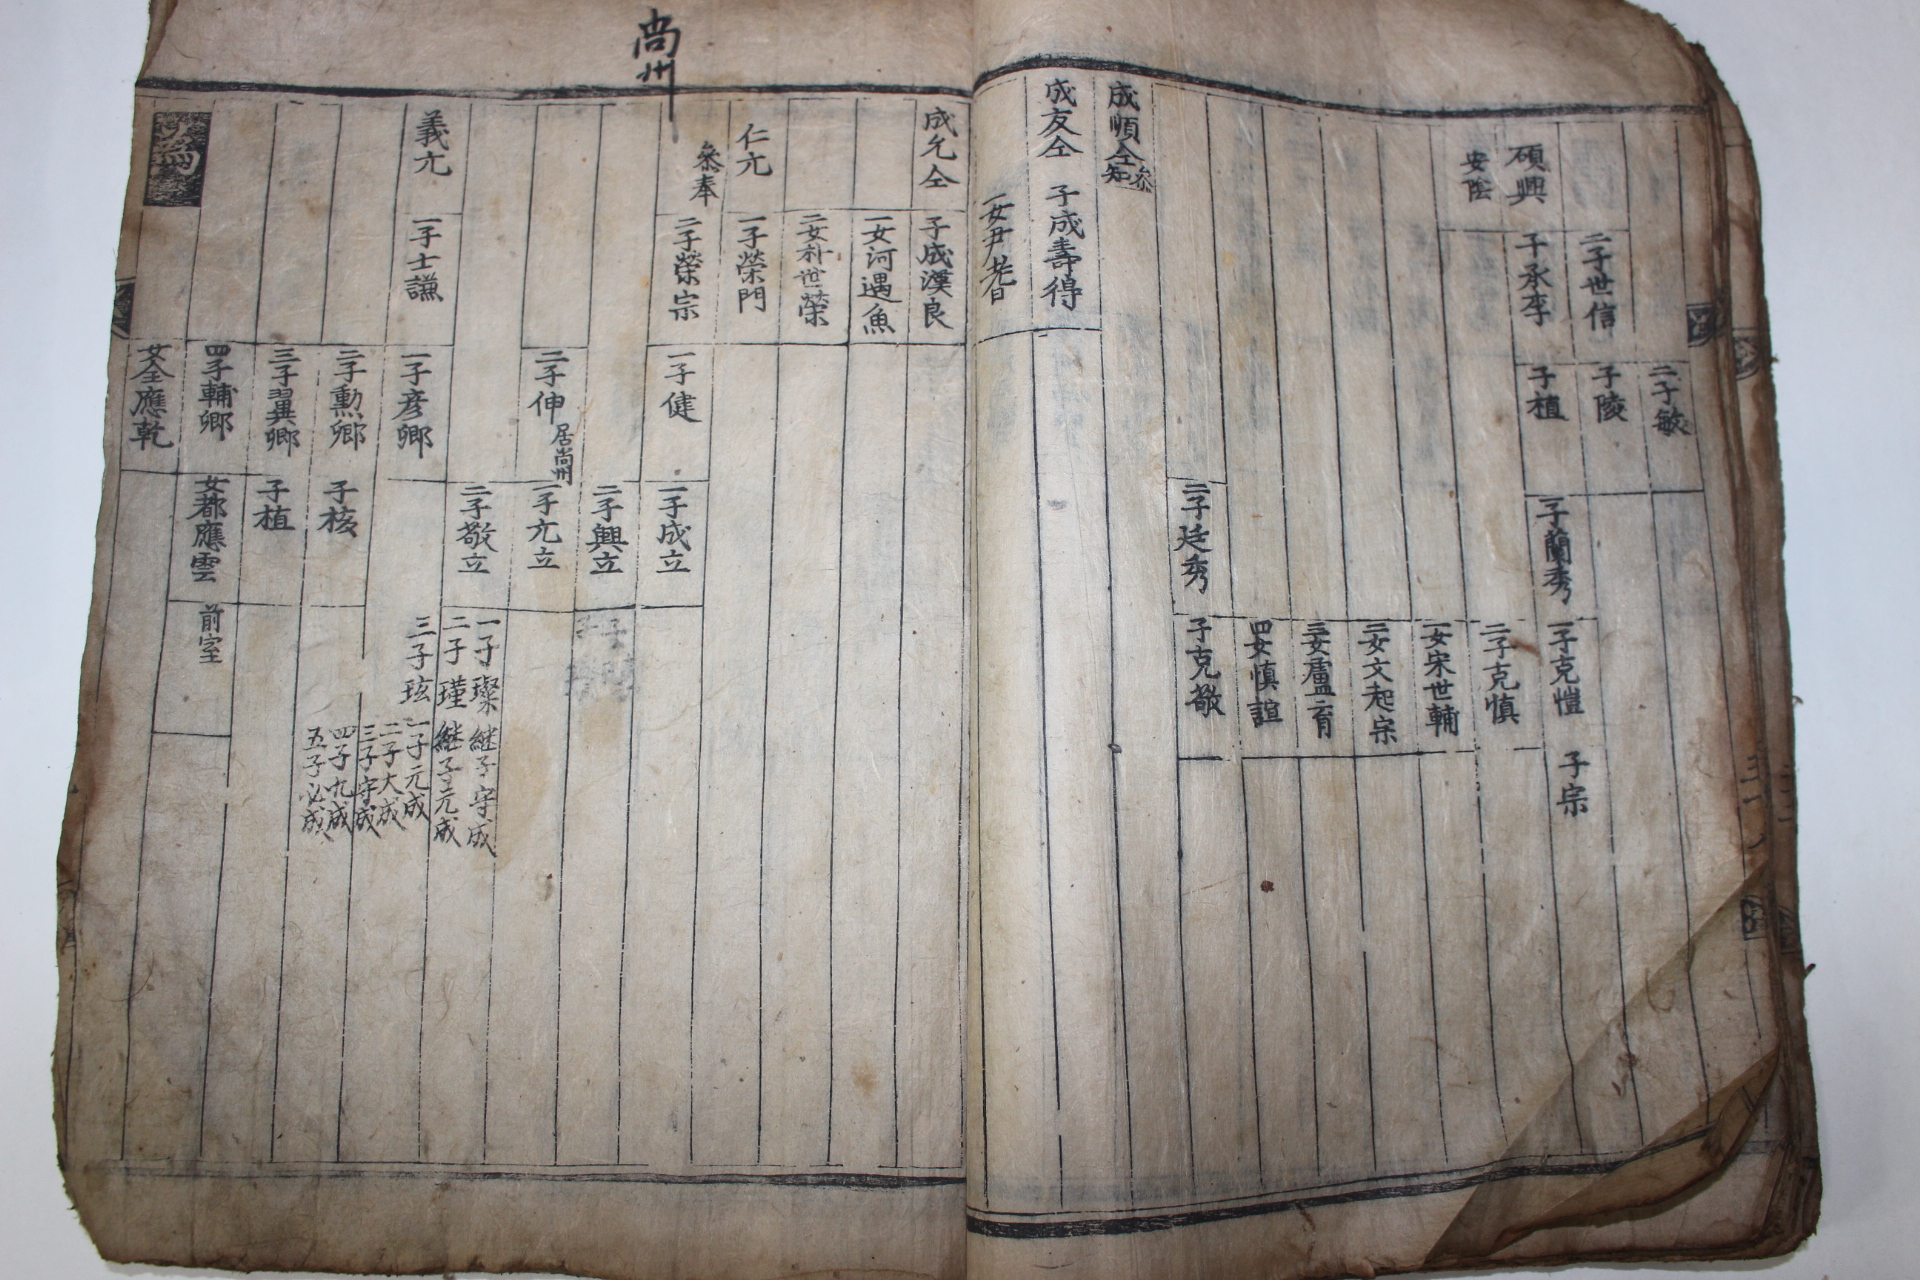 二子敏
二子世信
子陵
碩興
安陰
子承李
子植
一子蘭秀
一子克愷
子宗
二子克愼
一女宋世輔
二女文起宗
三女盧育
四女愼誼
二子廷秀
子克敬
成順仝
参知
成友仝
子成壽得
一女尹耆
尙州
成允仝
子成漢良
一女河遇魚
二女朴世榮
仁亢
参奉
一子榮門
二子榮宗
一子健
一子成立
二子興立
二子伸
居尙州
一子亢立
二子敬立
一子璨
継子守成
二子瑾
継子元成
三子玹
一子元成
二子大成
三子守成
四子九成
五子必成
義亢
一子士謙
一子彦卿
二子勲卿
子核
三子翼卿
子植
四子輔卿
女都應雲
前室
女仝應乾
為